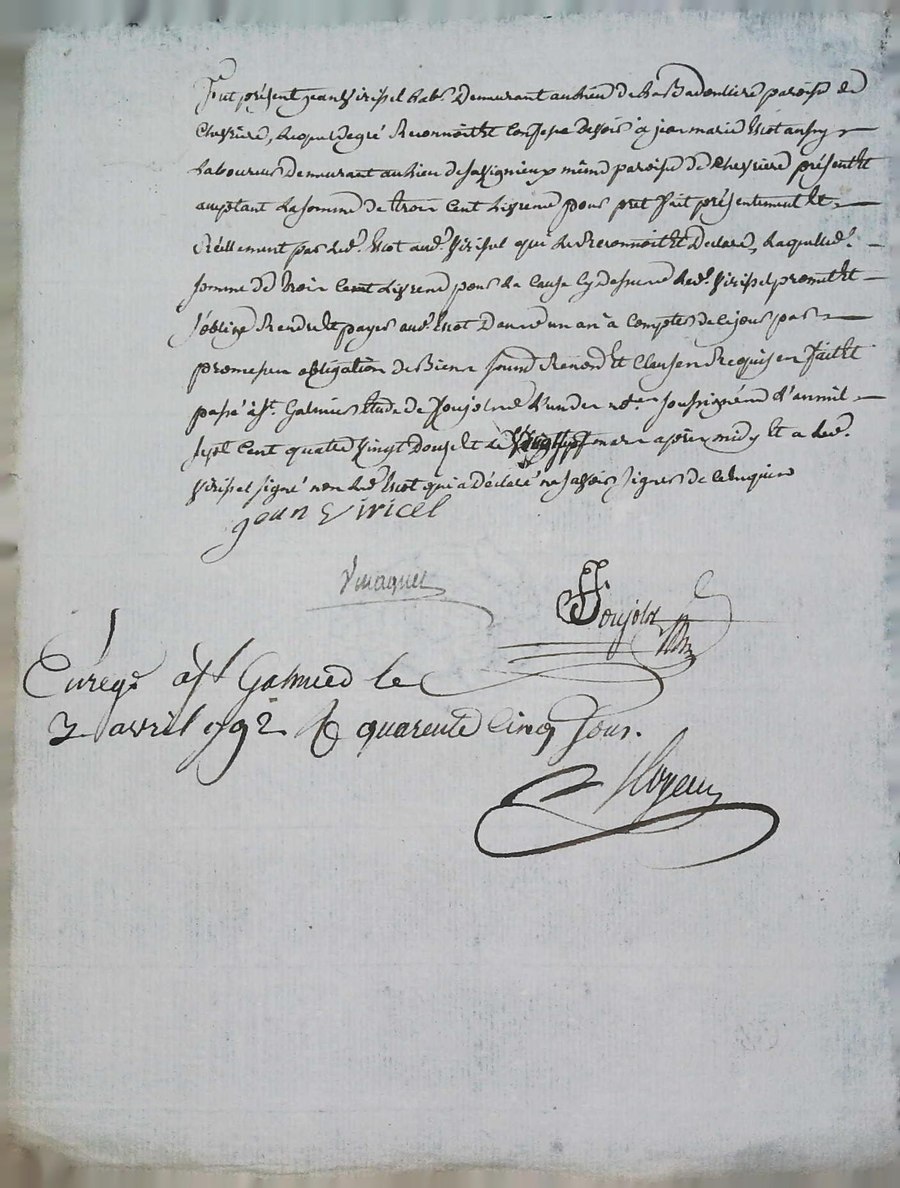 Fut présent jean Viricel lab.r Demeurant au lieu de La Badouliere paroisse de
Chevriere, Lequel de gré Reconnoit et Confesse devoir à jean marie
Laboureur Demeurant au lieu de Savignieux même paroisse de Chevriere présent et
acceptant La somme de trois Cent Livres pour pret fait présentement et
Réellement par led. aud. Viricel qui Le Reconnoit et Declare, Laquelled.
somme de trois Cent Livres pour La Cause Cy dessus Led. Viricel promet et
s'oblige Rendre et payer aud. Dans un an à Compter de Ce jour par
promesse obligation de Biens Soumis Renoncé et Clauses Requises fait et
passé à St. Galmier Etude de Poujolat L'un des no.res soussignés L'an mil
sept Cent quatre Vingt Douze et le Vingt sept mars après midy et a Led.
Viricel signé non Led. qui a Déclaré ne savoir signer de Ce Enquis
jean Viricel
Poujolat
Enregé à St Galmier le
2 avril 1792 R quarente Cinq Sous.